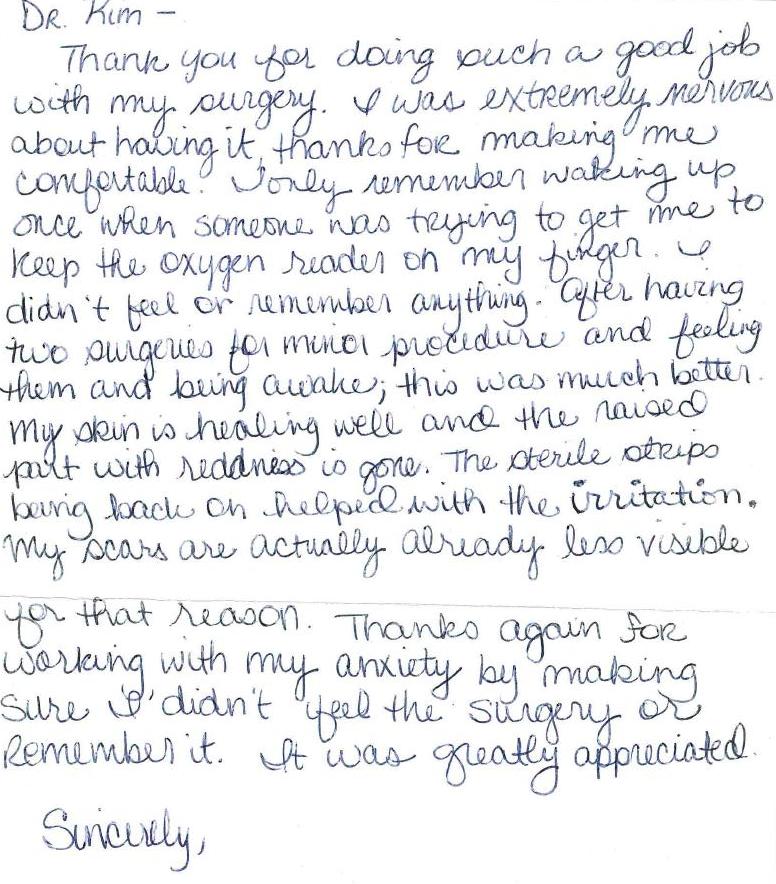 Dr. Kim -
Thank you for doing such a good job
with my surgery. I was extremely nervous
about having it, thanks for making me
comfortable. I only remember waking up
once when someone was trying to get me to
keep the oxygen reader on my finger. I
didn't feel or remember anything. After having
two surgeries for minor procedure and feeling
them and being awake; this was much better.
My skin is healing well and the raised
part with reddness is gone. The sterile strips
being back on helped with the irritation.
My scars are actually already less visible
for that reason. Thanks again for
working with my anxiety by making
sure I didn't feel the surgery or
remember it. It was greatly appreciated.
Sincerely,